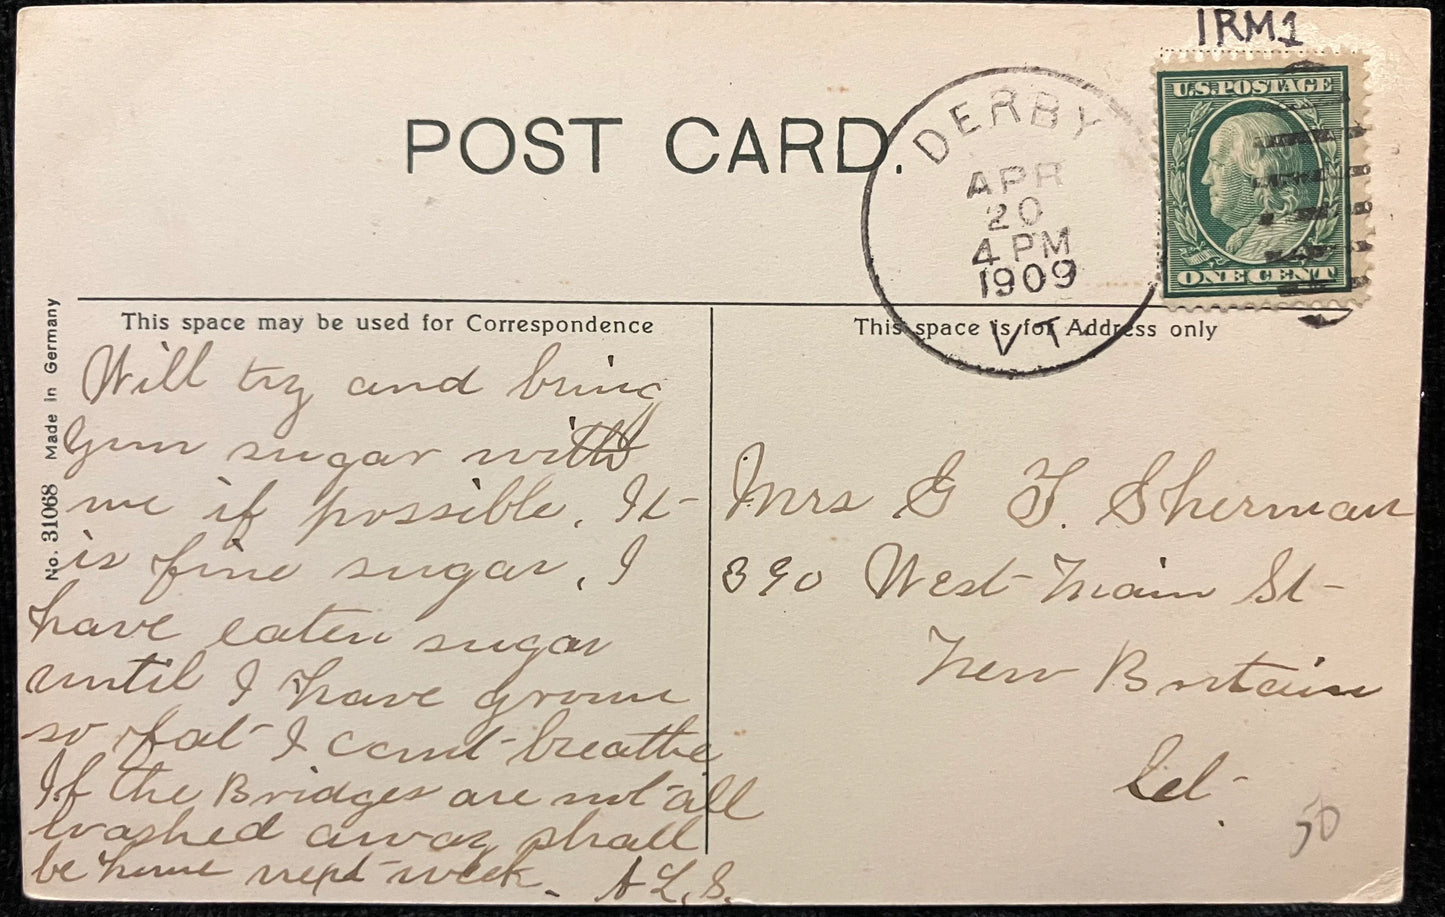 IRM1
POST CARD.
DERBY
APR
20
4 PM
1909
VT
U.S. POSTAGE
ONE CENT
This space may be used for Correspondence
This space is for Address only
No. 31068 Made in Germany
Will try and bring
sugar with
me if possible. It
is fine sugar. I
have eaten sugar
until I have grown
so fat I cant breathe
If the Bridges are not all
washed away shall
be home next week.
A L. S.
Mrs G F. Sherman
390 West Main St
New Britain
Ct
50